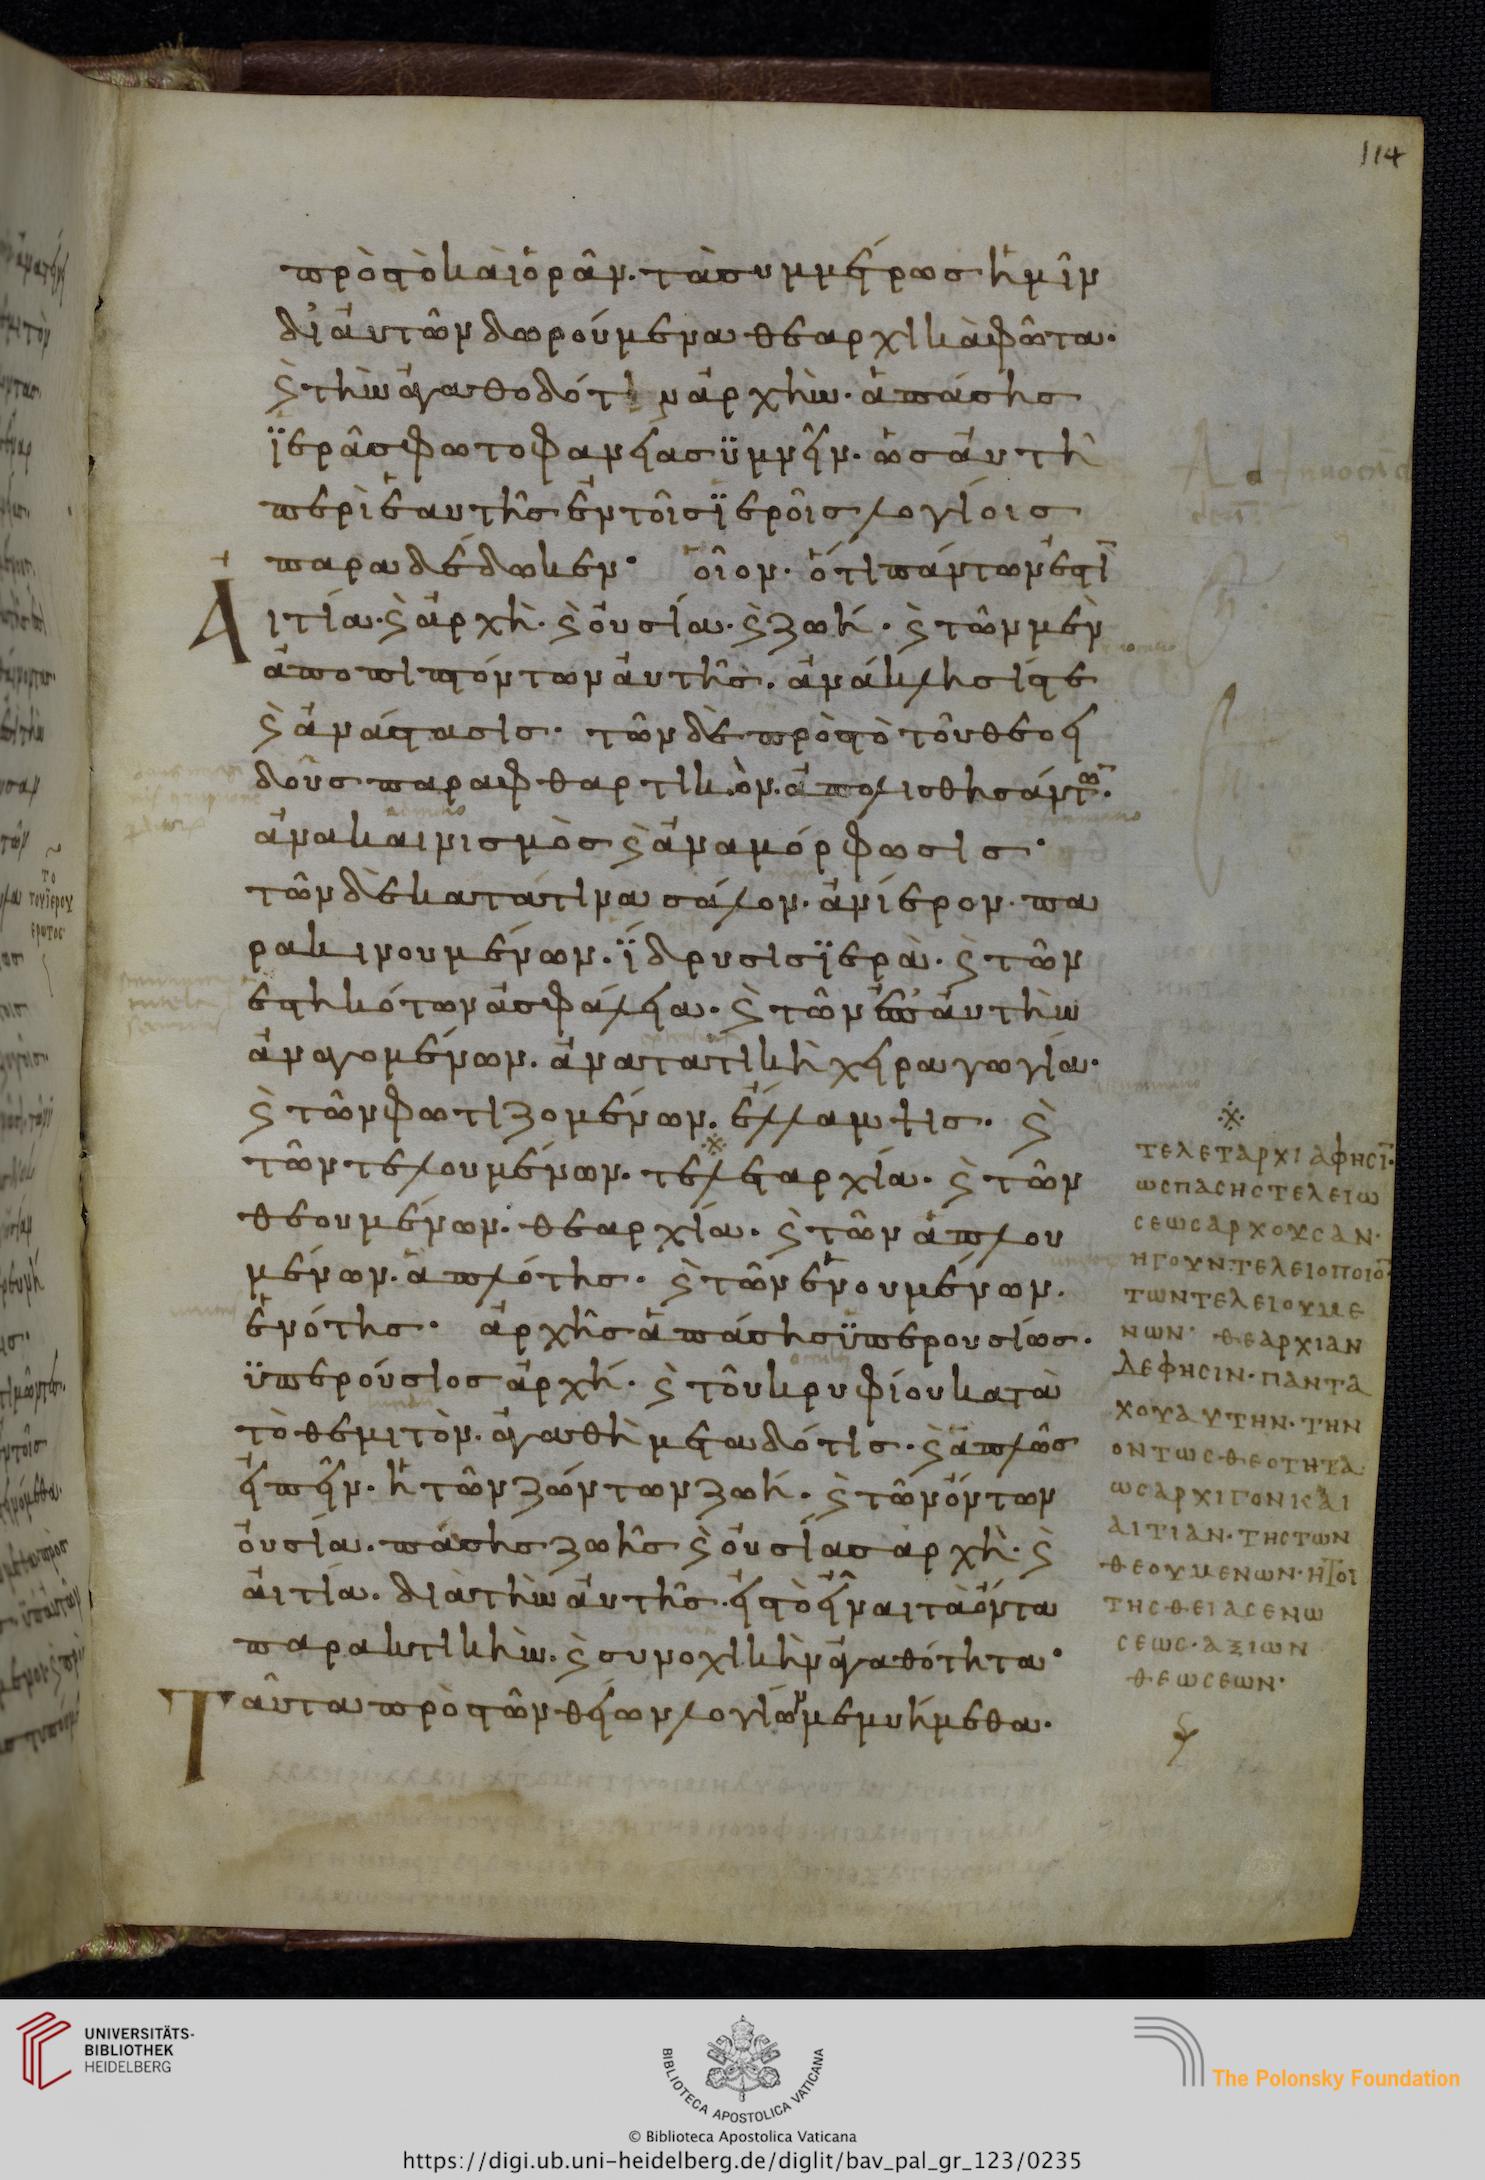 114
πρὸς τὸ καὶ ὁρᾶν· τὰ συμμέρως ἡμῖν
δι' αὐτῶν δωρούμενα θεαρχικὰ φῶτα·
ϗ τὴν ἀγαθοδότιν ἀρχὴν· ἁπάσης
ϊερᾶς φωτοφανείας ϋμνεῖν· ὡς αὐτὴ
περὶ ἑαυτῆς ἐν τοῖς ϊεροῖς λογίοις
παραδέδωκεν· οἷον· ὅτι πάντων ἐστὶ
Αἰτία· ϗ ἀρχὴ· ϗ οὐσία· ϗ ζωή· ϗ τῶν μὲν
ἀποπιπτόντων αὐτῆς· ἀνάκλησίς τε
ϗ ἀνάστασις· τῶν δὲ πρὸς τὸ τοῦ θεοει
δοῦς παραφθαρτικὸν· ἀπολισθησάντων·
ἀνακαινισμὸς ϗ ἀναμόρφωσις·
τῶν δὲ κατά τινα σάλον· ἀνίερον· πα
ρακινουμένων· ΐδρυσις ϊερὰ· ϗ τῶν
ἑστηκότων ἀσφάλεια· ϗ τῶν ἐπ' αὐτὴν
ἀναγομένων· ἀνατατικὴ χειραγωγία·
ϗ τῶν φωτιζομένων· ἔλλαμψις· ϗ
τῶν τελουμένων· τελεταρχία· ϗ τῶν
θεουμένων· θεαρχία· ϗ τῶν ἁπλου
μένων· ἁπλότης· ϗ τῶν ἑνουμένων·
ἑνότης· ἀρχῆς ἁπάσης ϋπερουσίως·
ϋπερούσιος ἀρχή· ϗ τοῦ κρυφίου κατὰ
τὸ θεμιτὸν· ἀγαθὴ μεταδότις· ϗ ἁπλῶς
εἰπεῖν· ἡ τῶν ζώντων ζωή· ϗ τῶν ὄντων
οὐσία· πάσης ζωῆς ϗ οὐσίας ἀρχὴ· ϗ
αἰτία· διὰ τὴν αὐτῆς· εἰς τὸ εἶναι τὰ ὄντα
παρακτικὴν· ϗ συνοχικὴν ἀγαθότητα·
Ταῦτα πρὸς τῶν θείων λογίων μεμυήμεθα·
※
ΤΕΛΕΤΑΡΧΙΑ ΦΗΣΙ·
ΩΣ ΠΑΣΗΣ ΤΕΛΕΙΩ
ΣΕΩΣ ΑΡΧΟΥΣΑΝ·
ΗΓΟΥΝ ΤΕΛΕΙΟΠΟΙΟ
ΤΩΝ ΤΕΛΕΙΟΥΜΕ
ΝΩΝ· ΘΕΑΡΧΙΑΝ
ΔΕ ΦΗΣΙΝ· ΠΑΝΤΑ
ΧΟΥ ΑΥΤΗΝ· ΤΗΝ
ΟΝΤΩΣ ΘΕΟΤΗΤΑ·
ΩΣ ΑΡΧΙΓΟΝ ΚΑΙ
ΑΙΤΙΑΝ· ΤΗΣ ΤΩΝ
ΘΕΟΥΜΕΝΩΝ· ΗΤΟΙ
ΤΗΣ ΘΕΙΑΣ ΕΝΩ
ΣΕΩΣ· ΑΞΙΩΝ
ΘΕΩΣΕΩΝ·
ΤΟ
ΤΟΥ ΪΕΡΟΥ
ΕΡΩΤΟΣ
UNIVERSITÄTS-
BIBLIOTHEK
HEIDELBERG
BIBLIOTECA APOSTOLICA VATICANA
The Polonsky Foundation
© Biblioteca Apostolica Vaticana
https://digi.ub.uni-heidelberg.de/diglit/bav_pal_gr_123/0235